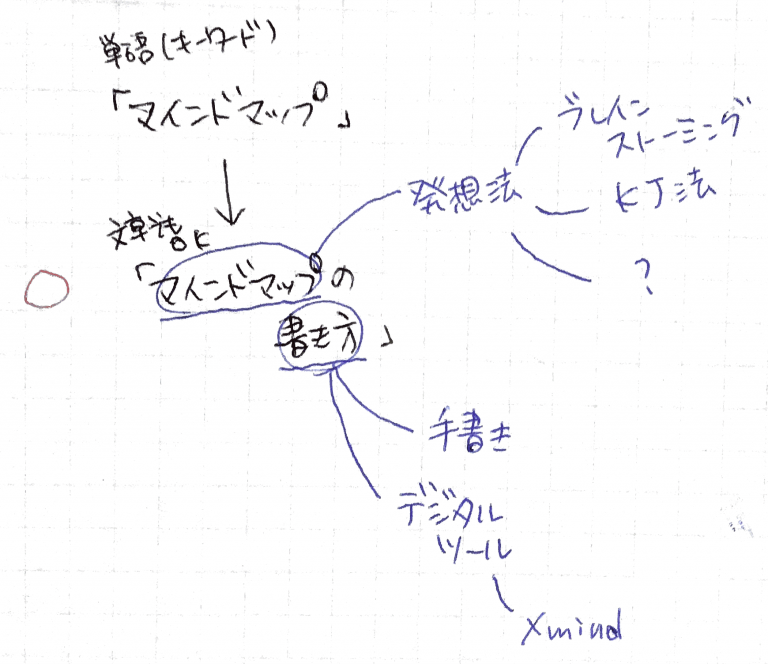 単語(キーワード)
「マインドマップ」
文章も良く
「マインドマップの
書き方」
発想法
ブレイン
ストーミング
KJ法
?
手書き
デジタル
ツール
Xmind